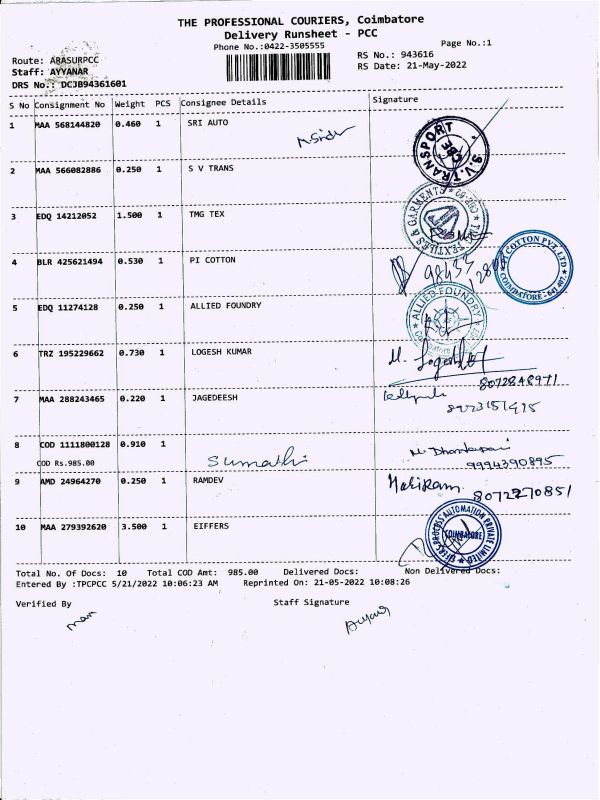 THE PROFESSIONAL COURIERS, Coimbatore
Delivery Runsheet - PCC
Phone No.:0422-3505555
Page No.:1
Route: ARASURPCC
RS No.: 943616
Staff: AYYANAR
RS Date: 21-May-2022
DRS No.: DCJB94361601
S No Consignment No Weight PCS Consignee Details Signature
1 MAA 568144820 0.460 1 SRI AUTO
S.V.TRANSPORT CBE
2 MAA 566082886 0.250 1 S V TRANS
3 EDQ 14212052 1.500 1 TMG TEX
TMG TEXTILES & GARMENTS
4 BLR 425621494 0.530 1 PI COTTON
PI COTTON PVT. LTD COIMBATORE - 641 407
5 EDQ 11274128 0.250 1 ALLIED FOUNDRY
ALLIED FOUNDRY
6 TRZ 195229662 0.730 1 LOGESH KUMAR
8072848971
7 MAA 288243465 0.220 1 JAGEDEESH
8 COD 1111800128 0.910 1
COD Rs.985.00 Sumathi
9994390895
9 AMD 24964270 0.250 1 RAMDEV
Hariram 8072270851
10 MAA 279392620 3.500 1 EIFFERS
PROCESS AUTOMATION PRIVATE LIMITED COIMBATORE
Total No. Of Docs: 10 Total COD Amt: 985.00 Delivered Docs: Non Delivered Docs:
Entered By :TPCPCC 5/21/2022 10:06:23 AM Reprinted On: 21-05-2022 10:08:26
Verified By Staff Signature